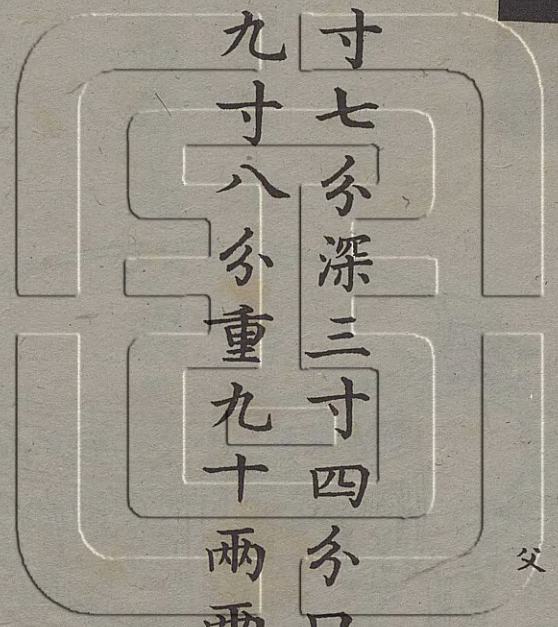 父
寸七分深三寸四分口
九寸八分重九十兩兩